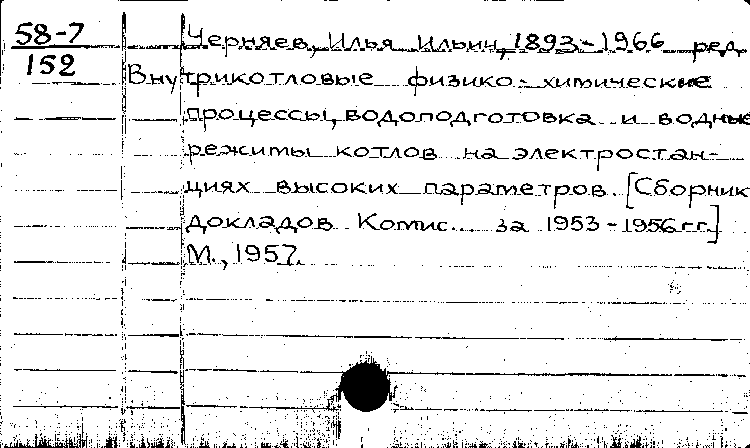 58-7
152
Черняев, Илья Ильич, 1893-1966 ред.
Внутрикотловые физико-химические
процессы, водоподготовка и водные
режимы котлов на электростан-
циях высоких параметров. [Сборник
докладов Комис... за 1953-1956 гг.]
М., 1957.